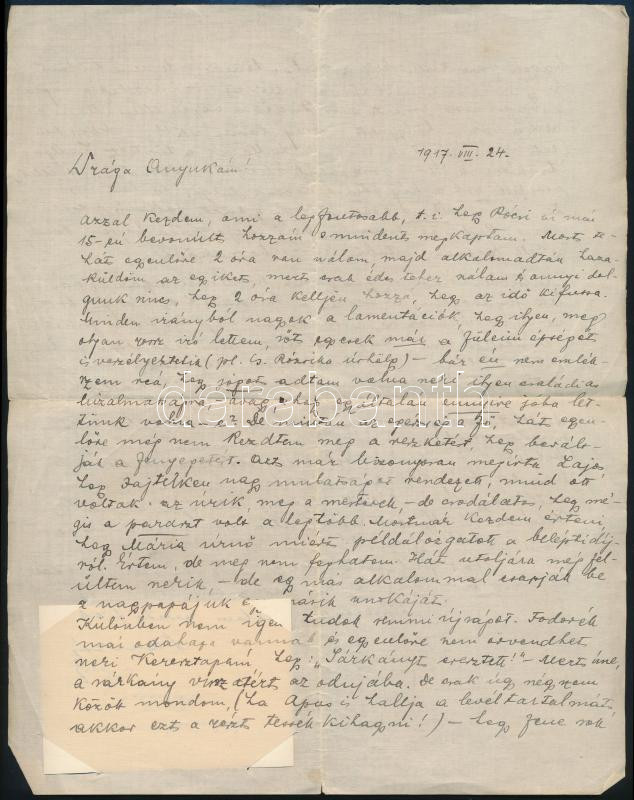 1917. VIII. 24.
Drága Anyukám!
azzal kezdem, ami a legfontosabb, t. i. hogy Rócsi úr már
15-én bevonult hozzám s mindent megkaptam. Most te-
hát egyenlőre 2 óra van nálam, majd alkalomadtán haza-
küldöm az egyiket, mert csak édes teher nálam s annyi dol-
gunk nincs, hogy 2 óra kelljen hozzá, hogy az idő kifussa.
Minden irányból nagyok a lamentációk, hogy ilyen, meg
olyan rossz író lettem, sőt egyesek már a füleim épségét
is veszélyeztetik (pl. Cs. Rózsika úrhölgy) – bár én nem emlék-
szem reá, hogy jogot adtam volna neki ilyen családias
bizalmakra, avagy hogy egyáltalán ennyire jóba let-
tünk volna – ez de, miután az egészség a fő, hát egyen-
lőre még nem kezdtem meg a reszketést, hogy bevált-
ják a fenyegetést. Azt már bizonyosan megírta Lajos
hogy nagy mulatságot rendezett, mind ott
voltak az úrik, meg a mesterek, – de csodálatos, hogy mé-
gis a paraszt volt a legtöbb. Mostmár kezdem érteni,
hogy Mária úrnő miért példálózgatott a beléptidíj-
ról. Értem, de meg nem foghatom. Hát utoljára még fel-
ültem nekik, – de egy más alkalommal csapják be
a nagypapájuk másik unokáját.
Különben nem igen tudok semmi újságot. Fodorék
mai odahaza vannak és egyenlőre nem örvendhet
neki Keresztapám, hogy: „Sárkányt eresztett!" – Mert íme,
a sárkány vissza az odujába. De csak úgy négyszem
között mondom, (ha Apus is hallja a levél tartalmát
akkor ezt a részt tessék kihagyni!) – hogy fene sok
darabanth